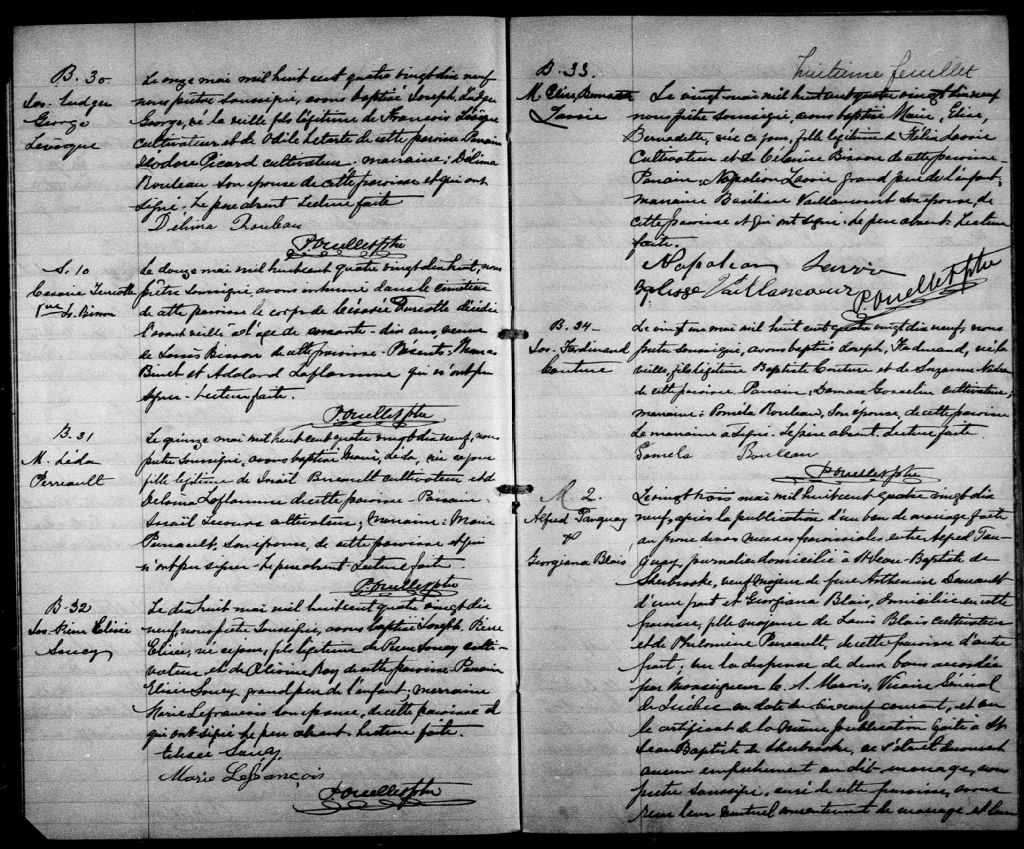 B. 30
Jos. Ludger
George
Levèque
Le onze mai mil huit cent quatre vingt dix neuf
nous prêtre soussigné, avons baptisé Joseph, Ludger
George, né la veille fils légitime de François Levèque
cultivateur et de Odile Letarte de cette paroisse Parrain
Isodore Picard cultivateur. marraine: Délima
Rouleau son épouse de cette paroisse et qui ont
signé. Le père absent Lecture faite
Délima Rouleau
P. Ouellet ptre
S. 10
Césarie Turcotte
Vve Ls. Bisson
Le douze mai mil huit cent quatre vingt dix huit, nous
prêtre soussigné, avons inhumé dans le cimetière
de cette paroisse le corps de Césarée Turcotte décédée
l'avant veille à l'age de soixante-dix ans, veuve
de Louis Bisson de cette paroisse. Présents:
Binet et Adélard Laflamme qui n'ont pu
signer. Lecture faite.
P. Ouellet ptre
B. 31
M. Léda
Perreault
Le quinze mai mil huit cent quatre vingt dix neuf, nous
prêtre soussigné, avons baptisé Marie, Léda, née ce jour
fille légitime de Ismaël cultivateur et de
Délima Laflamme de cette paroisse. Parrain:
cultivateur; Marraine: Marie
Perreault, son épouse, de cette paroisse et qui
n'ont pu signer. Le père absent Lecture faite
P. Ouellet ptre
B. 32
Jos. Pierre Elisée
Soucy
Le dix huit mai mil huit cent quatre vingt dix
neuf, nous prêtre soussigné, avons baptisé Joseph, Pierre
Elisée, né ce jour, fils légitime de Pierre Soucy culti-
vateur et de Roy de cette paroisse Parrain
Elisée Soucy grand père de l'enfant, marraine
Marie Lefrançois son épouse, de cette paroisse et
qui ont signé Le père absent. Lecture faite.
Elisée Soucy
Marie Lefrançois
P. Ouellet ptre
huitième feuillet
B. 33.
M. Elise Bernadette
Lavoie
Le vingt mai mil huit cent quatre vingt dix neuf
nous prêtre soussigné, avons baptisé Marie, Elise,
Bernadette, née ce jour, fille légitime de Félix Lavoie
Cultivateur et de Célanire Bisson de cette paroisse-
Parrain, Napoléon Lavoie grand père de l'enfant;
marraine Vaillancourt son épouse, de
cette paroisse et qui ont signé. Le père absent. Lecture
faite.
Napoleon Lavoie
Vaillancour
P. Ouellet ptre
B. 34-
Jos. Ferdinand
Couture
Le vingt un mai mil huit cent quatre vingt dix neuf, nous
prêtre soussigné, avons baptisé Joseph, Ferdinand, né la
veille, fils légitime Baptiste Couture et de Suzanne
de cette paroisse Parrain, Damase Gosselin cultivateur,
marraine: Paméla Rouleau, son épouse, de cette paroisse
La marraine a signé. Le père absent. Lecture faite.
Pamela Rouleau
P. Ouellet ptre
M 2.
Alfred Tanguay
&
Georgiana Blais
Le vingt trois mai mil huit cent quatre vingt dix
neuf, après la publication d'un ban de mariage faite
au prone de nos messes paroissiales entre Alfred Tan-
guay, journalier domicilié à St Jean-Baptiste de
Sherbrooke, veuf majeur de feue
d'une part et Georgiana Blais, domiciliée en cette
paroisse, fille majeure de Louis Blais cultivateur
et de Philomène Perreault, de cette paroisse d'autre
part; vu la dispense de deux bans accordée
par Monseigneur C. A. Marois, Vicaire Général
de Québec en date du dix neuf courant, et vu
le certificat de la même publication faite à St
Jean Baptiste de Sherbrooke, ne s'étant découvert
aucun empêchement au dit mariage, nous
prêtre soussigné, curé de cette paroisse, avons
reçu leur mutuel consentement de mariage et leur